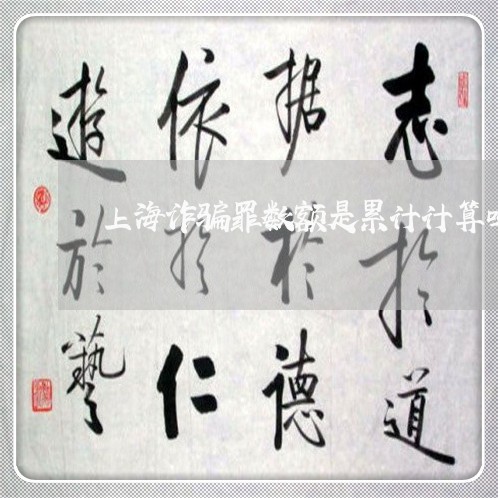 志於道
据於德
依於仁
遊於藝
上海诈骗罪数额是累计计算